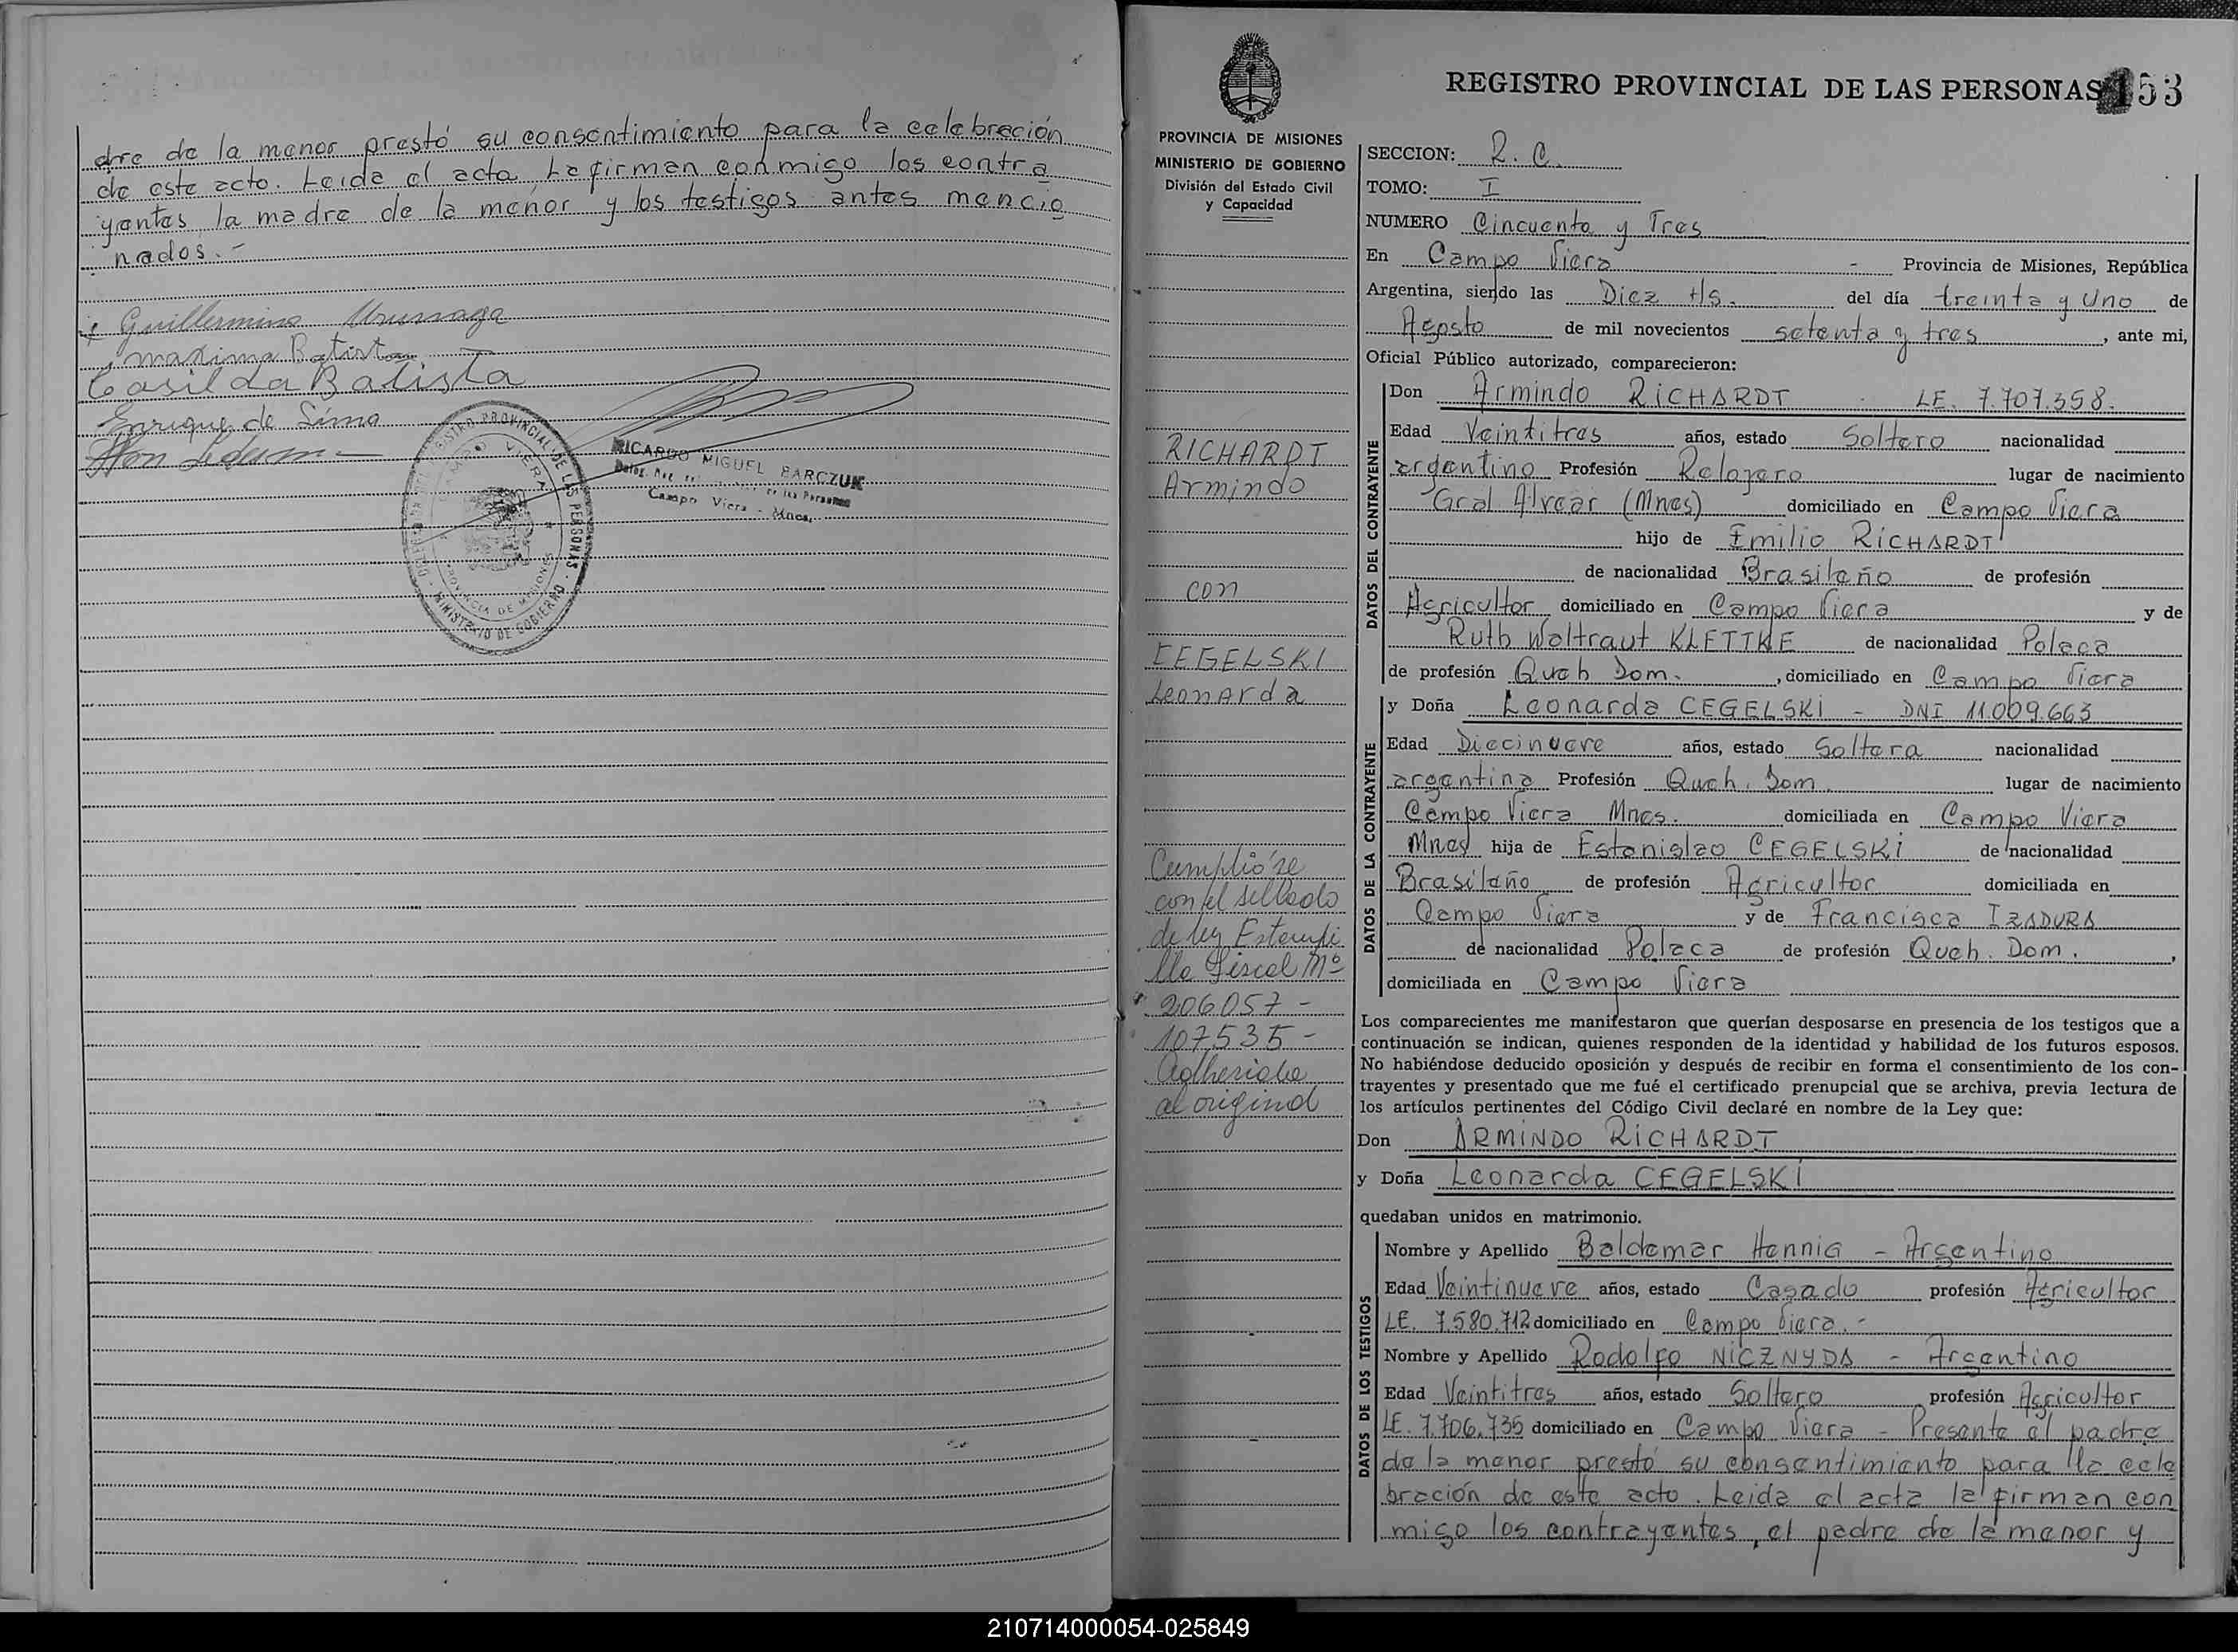 dre de la menor prestó su consentimiento para la celebración
de este acto. Leida el acta, la firman conmigo los contra
yentes, la madre de la menor y los testigos antes mencio
nados.-
Guillermino
maxima Batista
Casilda Batista
Enrique de Lima
REGISTRO PROVINCIAL DE LAS PERSONAS
CAMPO VIERA
PROVINCIA DE MISIONES
MINISTERIO DE GOBIERNO
RICARDO MIGUEL BARCZUK
de las Personas
Campo Viera - Mnes.
REGISTRO PROVINCIAL DE LAS PERSONAS 153
PROVINCIA DE MISIONES
MINISTERIO DE GOBIERNO
División del Estado Civil
y Capacidad
RICHARDT
Armindo
con
CEGELSKI
Leonarda
Cumplióse
con el sellado
de ley Estampi
lla Fiscal Nº
206057 -
107535 -
adherida
al original
SECCION: R. C.
TOMO: I
NUMERO Cincuenta y Tres
En Campo Viera - Provincia de Misiones, República
Argentina, siendo las Diez Hs. del día treinta y Uno de
Agosto de mil novecientos setenta y tres, ante mi,
Oficial Público autorizado, comparecieron:
DATOS DEL CONTRAYENTE
Don Armindo RICHARDT LE. 7.707.358.
Edad Veintitres años, estado Soltero nacionalidad
argentino Profesión Relojero lugar de nacimiento
Gral Alvear (Mnes) domiciliado en Campo Viera
hijo de Emilio RICHARDT
de nacionalidad Brasileño de profesión
Agricultor domiciliado en Campo Viera y de
Ruth Waltraut KLETTKE de nacionalidad Polaca
de profesión Queh Dom. , domiciliado en Campo Viera
DATOS DE LA CONTRAYENTE
y Doña Leonarda CEGELSKI - DNI 11.009.663
Edad Diecinueve años, estado Soltera nacionalidad
argentina Profesión Queh. Dom. lugar de nacimiento
Campo Viera Mnes. domiciliada en Campo Viera
Mnes hija de Estanislao CEGELSKI de nacionalidad
Brasileño de profesión Agricultor domiciliada en
Campo Viera y de Francisca IZADURA
de nacionalidad Polaca de profesión Queh. Dom. ,
domiciliada en Campo Viera
Los comparecientes me manifestaron que querían desposarse en presencia de los testigos que a
continuación se indican, quienes responden de la identidad y habilidad de los futuros esposos.
No habiéndose deducido oposición y después de recibir en forma el consentimiento de los con-
trayentes y presentado que me fué el certificado prenupcial que se archiva, previa lectura de
los artículos pertinentes del Código Civil declaré en nombre de la Ley que:
Don ARMINDO RICHARDT
y Doña Leonarda CEGELSKI
quedaban unidos en matrimonio.
DATOS DE LOS TESTIGOS
Nombre y Apellido Baldemar Hennig - Argentino
Edad Veintinueve años, estado Casado profesión Agricultor
LE. 7.580.712 domiciliado en Campo Viera.-
Nombre y Apellido Rodolfo NICZNYDA - Argentino
Edad Veintitres años, estado Soltero profesión Agricultor
LE. 7.706.735 domiciliado en Campo Viera - Presente el padre
de la menor prestó su consentimiento para la cele
bración de este acto. Leida el acta la firman con
migo los contrayentes, el padre de la menor y
210714000054-025849